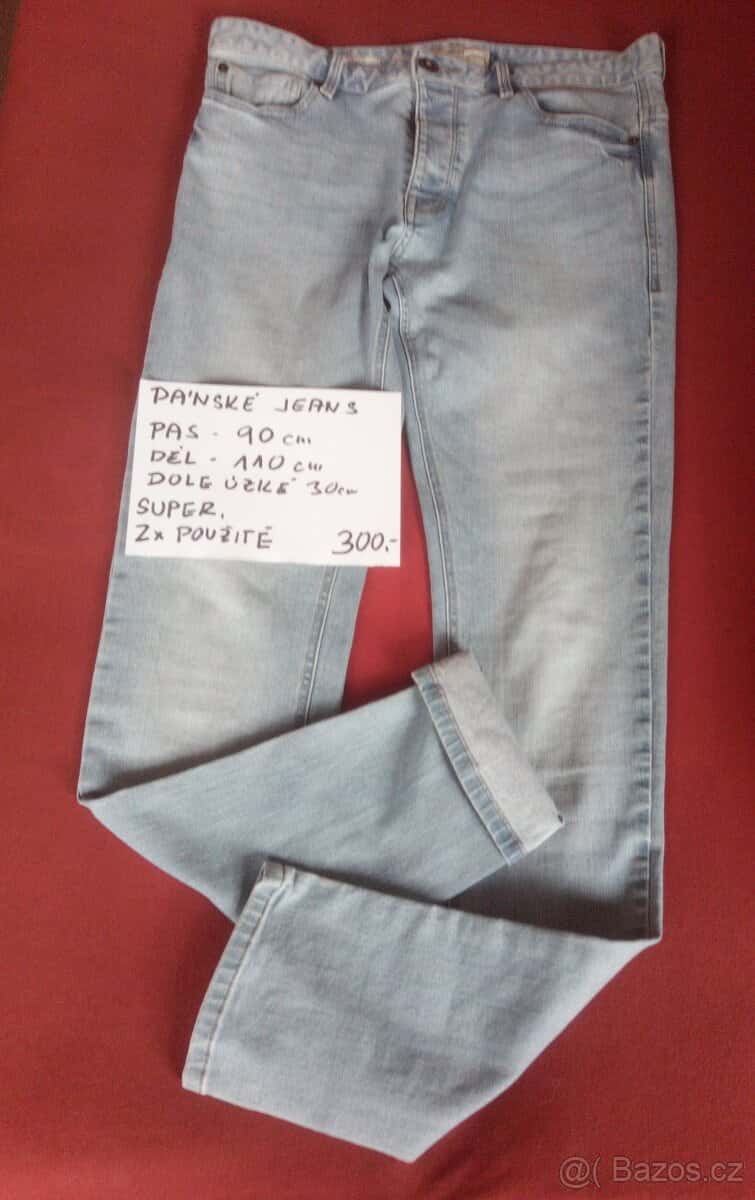 PÁNSKÉ JEANS
PAS - 90 cm
DÉL - 110 cm
DOLE ÚZKÉ 30cm
SUPER.
2x POUŽITÉ 300.-
@( Bazos.cz